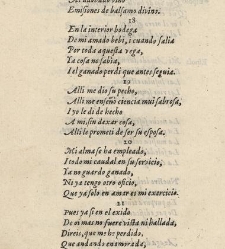 Emisiones de balsamo divino.
18
En la interior bodega
De mi amado bebi, i cuando salia
Por toda aquesta vega,
Ya cosa no sabia,
I el ganado perdi que antes seguia.
19
Alli me dio su pecho,
Alli me enseño ciencia mui sabrosa,
I yo le di de hecho
A mi, sin dexar cosa,
Alli le prometi de ser su esposa.
20
Mi alma se ha empleado,
I todo mi caudal en su servicio,
Ya no guardo ganado,
Ni ya tengo otro oficio,
Que ya solo en amar es mi exercicio.
21
Pues ya si en el exido
De oi mas no fuere vista ni hallada,
Direis, que me he perdido,
Que andando enamorada,